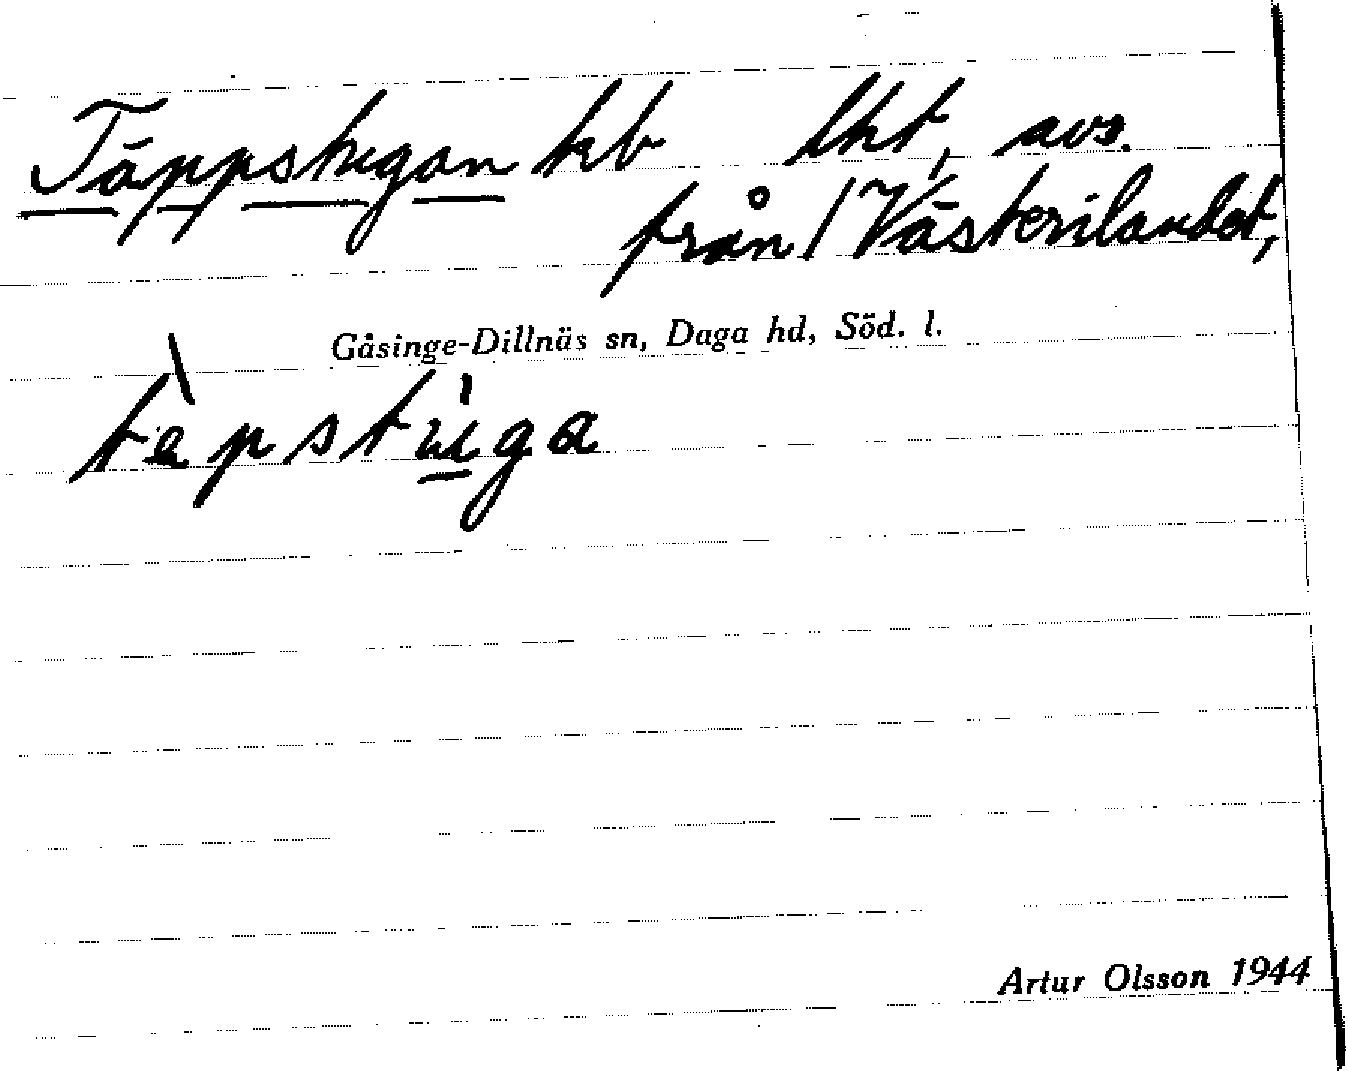 Täppstugan hb lht, avs.
från / Västerilandet,
Gåsinge-Dillnäs sn, Daga hd, Söd. l.
tæ̀pstu̇ga
Artur Olsson 1944